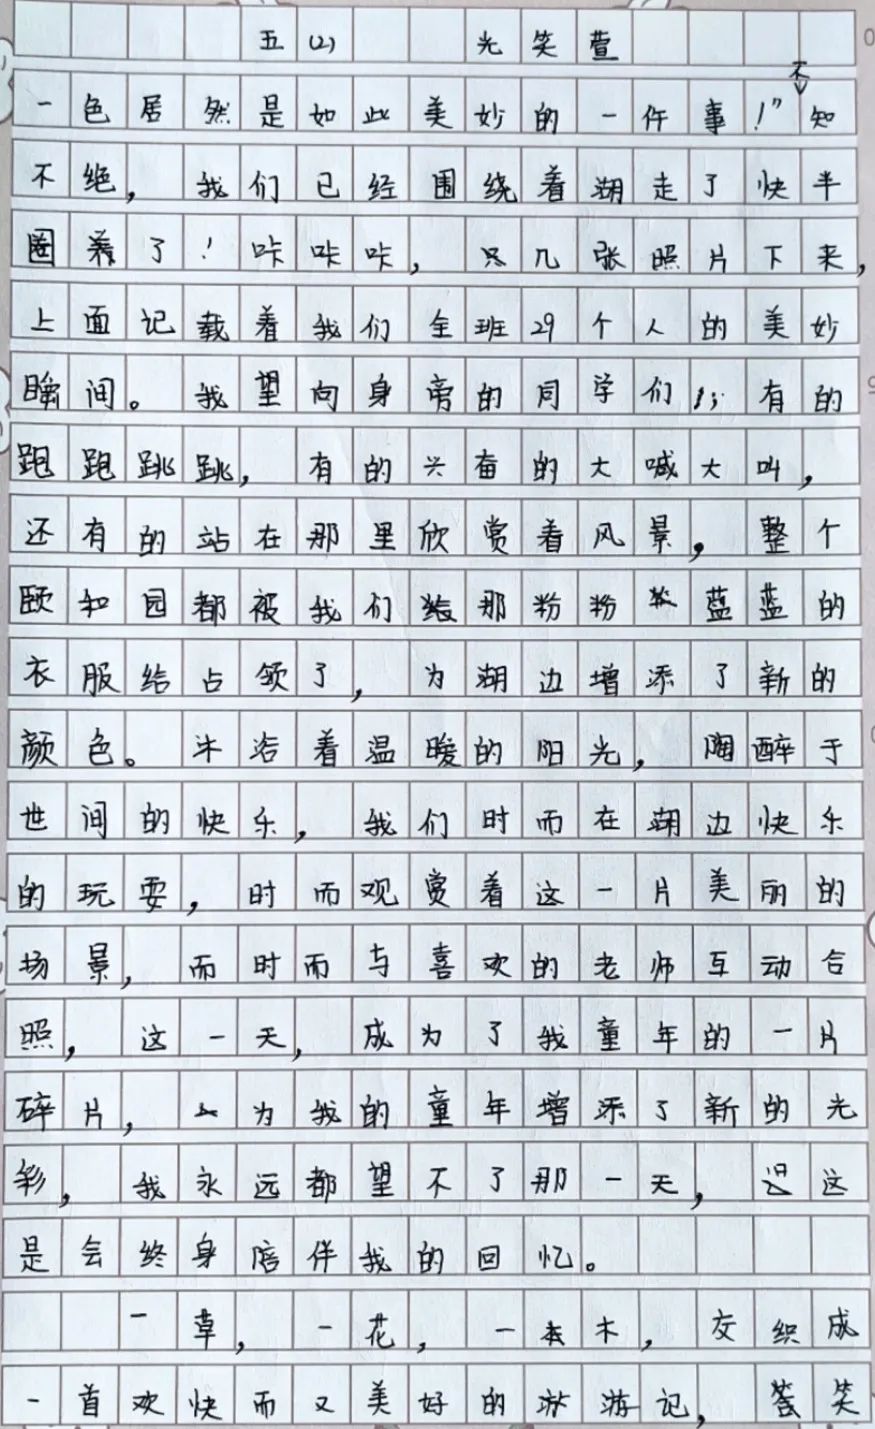 五(2) 光笑萱
一色居然是如此美妙的一件事!”不知
不绝，我们已经围绕着湖走了快半
圈着了！咔咔咔，只几张照片下来，
上面记载着我们全班29个人的美妙
瞬间。我望向身旁的同学们；有的
跑跑跳跳，有的兴奋的大喊大叫，
还有的站在那里欣赏着风景，整个
颐和园都被我们给那粉粉蓝蓝的
衣服给占领了，为湖边增添了新的
颜色。沐浴着温暖的阳光，陶醉于
世间的快乐，我们时而在湖边快乐
的玩耍，时而观赏着这一片美丽的
场景，而时而与喜欢的老师互动合
照，这一天，成为了我童年的一片
碎片，为我的童年增添了新的光
彩，我永远都望不了那一天，这
是会终身陪伴我的回忆。
一草，一花，一木，交织成
一首欢快而又美好的游记，笑